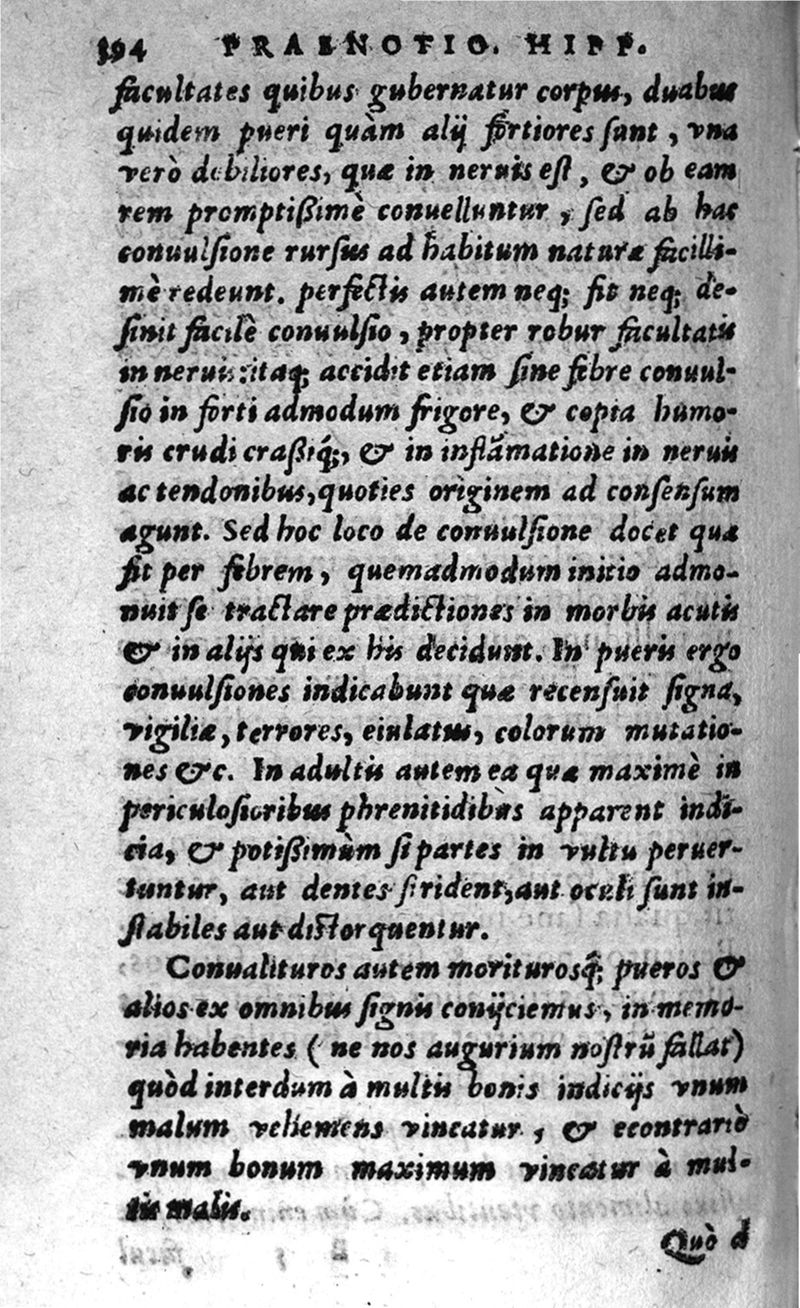 194 PRAENOTIO. HIPP.
facultates quibus gubernatur corpus, duabus
quidem pueri quàm alij fortiores sunt, vna
verò debiliores, quæ in neruis est, & ob eam
rem promptißimè conuelluntur, sed ab hac
conuulsione rursus ad habitum naturæ facilli-
mè redeunt. perfectis autem neq; fit neq; de-
sinit facilè conuulsio, propter robur facultatis
in neruis: itaq; accidit etiam sine febre conuul-
sio in forti admodum frigore, & copia humo-
ris crudi craßiq́;, & in inflāmatione in neruis
ac tendonibus, quoties originem ad consensum
agunt. Sed hoc loco de conuulsione docet quæ
fit per febrem, quemadmodum initio admo-
nuit se tractare prædictiones in morbis acutis
& in alijs qui ex his decidunt. In pueris ergo
conuulsiones indicabunt quæ recensuit signa,
vigiliæ, terrores, eiulatus, colorum mutatio-
nes &c. In adultis autem ea quæ maximè in
periculosioribus phrenitidibus apparent indi-
cia, & potißimùm si partes in vultu peruer-
tuntur, aut dentes strident, aut oculi sunt in-
stabiles aut distorquentur.
Conualituros autem moriturosq́; pueros &
alios ex omnibus signis conijciemus, in memo-
ria habentes (ne nos augurium nostrū fallat)
quòd interdum à multis bonis indicijs vnum
malum vehemens vincatur, & econtrariò
vnum bonum maximum vincatur à mul-
tis malis.
Quò d